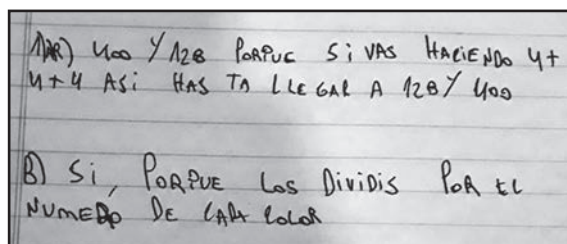 1) A) 400 Y 128 PORPUE SI VAS HACIENDO 4+
4+4 ASI HASTA LLEGAR A 128 Y 400
B) SI, PORPUE LOS DIVIDIS POR EL
NUMERO DE CADA COLOR